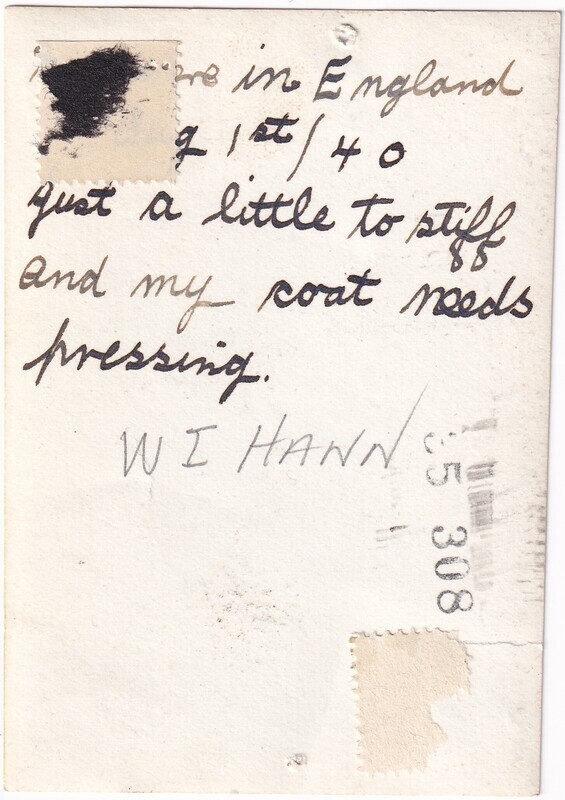 in England
1st/40
just a little to stiff
and my coat needs
pressing.
W I HANN
5 308